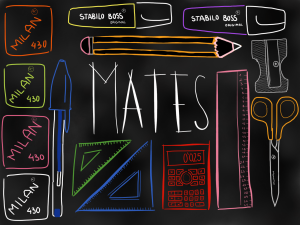 MILAN®
430
STABILO BOSS®
ORIGINAL
STABILO BOSS®
ORIGINAL
MILAN®
430
MATES
MILAN®
430
MILAN®
430